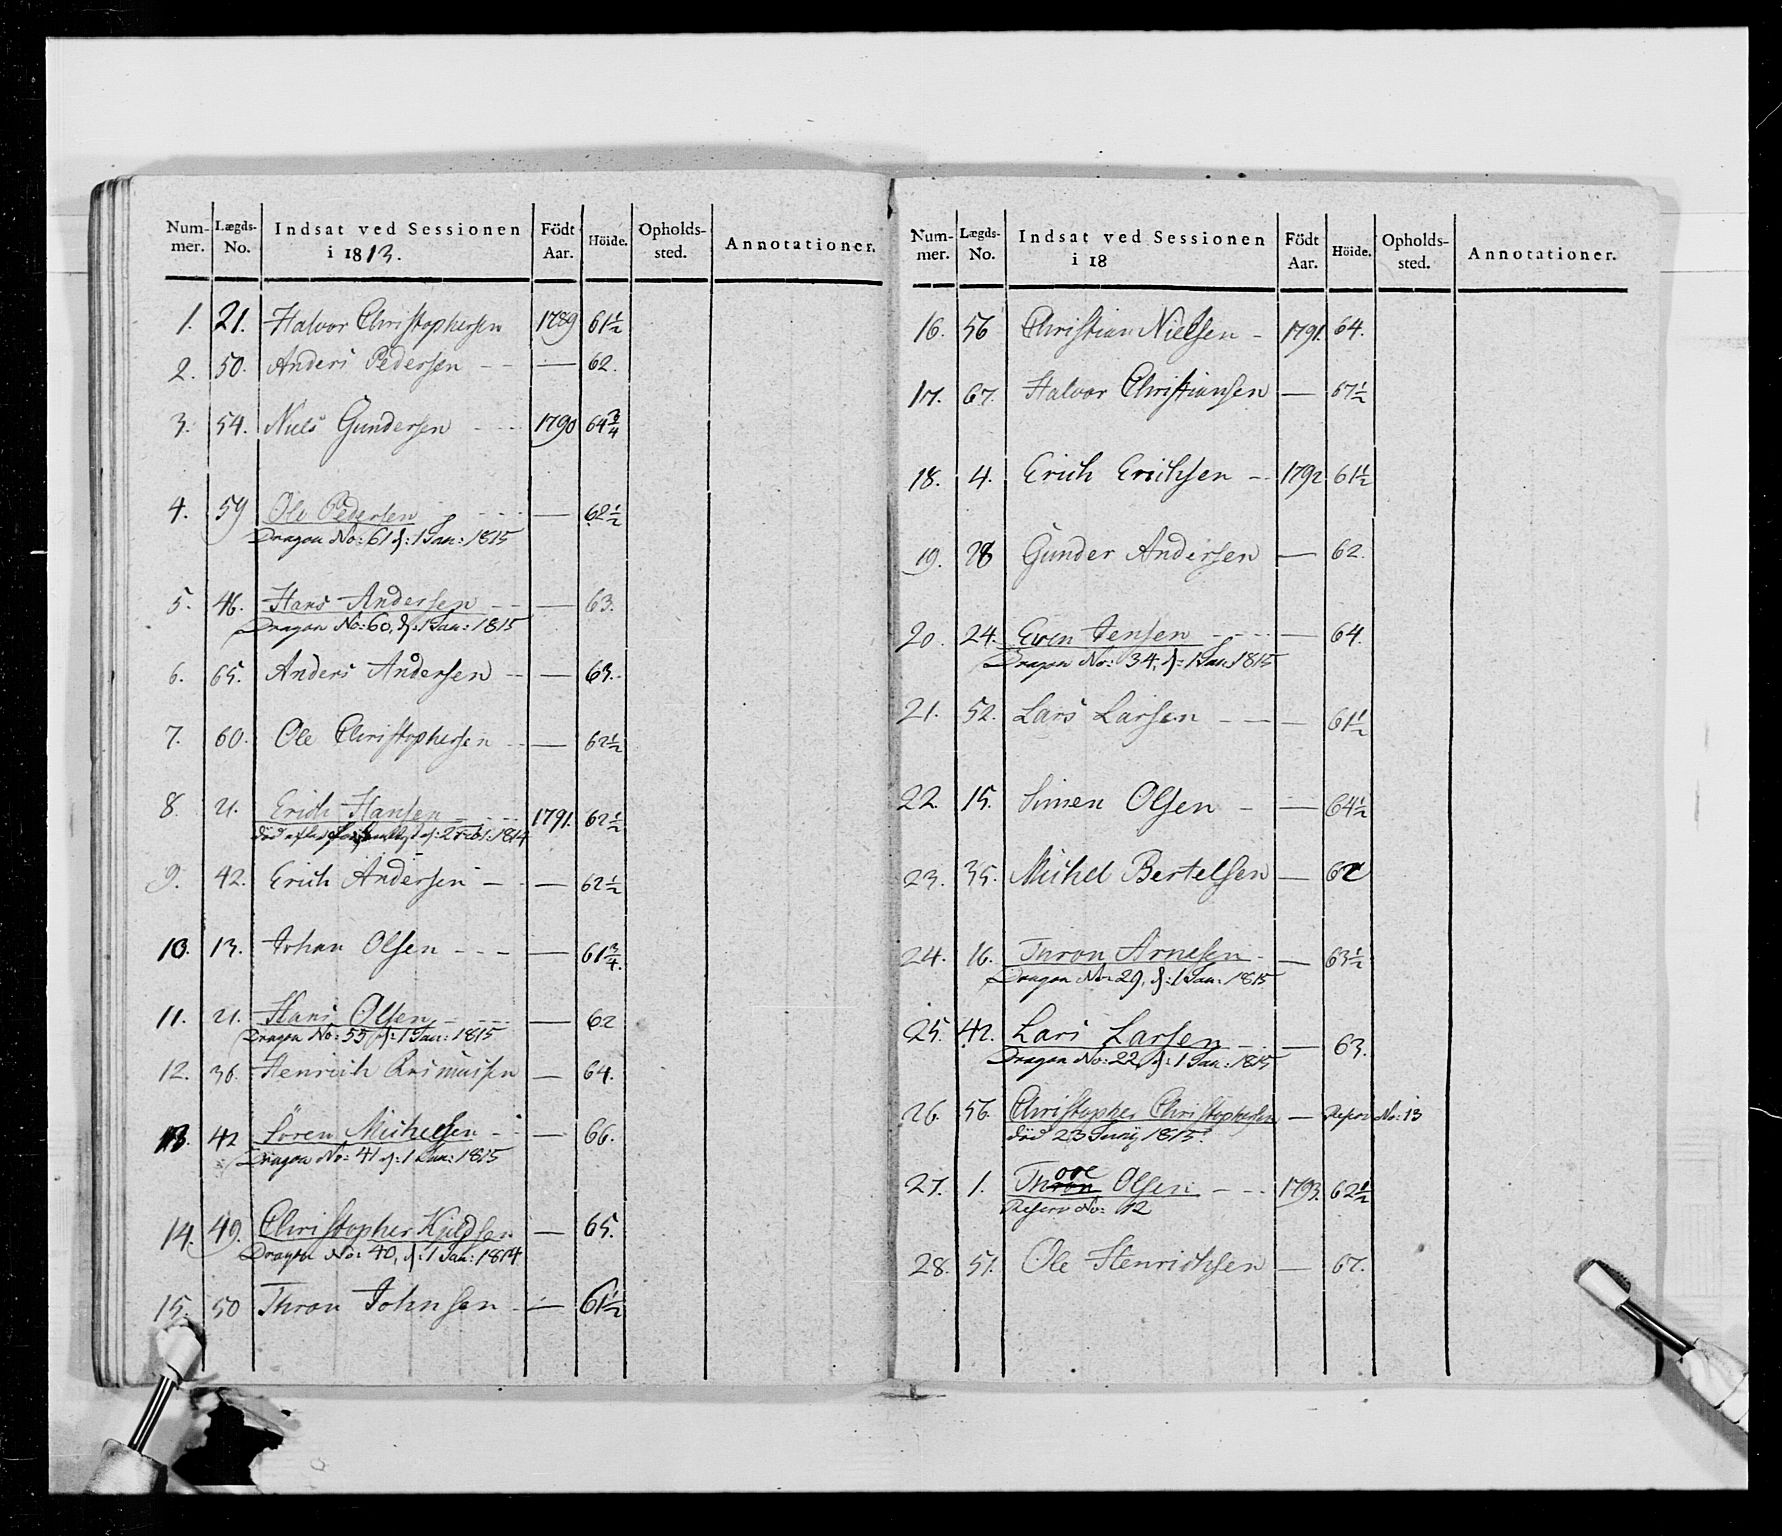 Num- Lægds- Indsat ved Sessionen Födt Höide. Opholds- Annotationer.
mer. No. i 1813. Aar. sted.
1. 21. Halvor Christophersen 1789 61 1/2
2. 50. Anders Pedersen - - — 62.
3. 54. Niels Gundersen - - - 1790 64 3/4
4. 59 Ole Pedersen - - - — 62 1/2
Dragon No: 61 d: 1 Jan: 1815
5. 46. Hans Andersen - - — 63.
Dragon No: 60, d: 1 Jan: 1815
6. 65. Anders Andersen - - — 63.
7. 60. Ole Christophersen - - — 62 1/2
8. 21. Erich Hansen - - - 1791. 62 1/2
död 1814
9. 42. Erich Andersen - - — 62 1/2
10. 13. Johan Olsen - - - — 61 3/4.
11. 21. Hans Olsen - - - — 62
Dragon No: 55 d: 1 Jan: 1815
12. 36. Henrich Rasmussen — 64.
13. 42 Sören Michelsen - - — 66.
Dragon No: 41 d: 1 Jan: 1815
14. 49. Christopher Kjeldsen — 65.
Dragon No: 40, d: 1 Jan: 1814
15. 50 Thron Johnsen - — 61 1/2
Num- Lægds- Indsat ved Sessionen Födt Höide. Opholds- Annotationer.
mer. No. i 18 Aar. sted.
16. 56 Christian Nielsen - 1791. 64.
17. 67. Halvor Christiansen — 67 1/2
18. 4. Erich Erichsen - - 1792 61 1/2
19. 28 Gunder Andersen — 62.
20. 24. Even Jensen - - - — 64.
Dragon No: 34, d: 1 Jan: 1815
21. 52. Lars Larsen - - — 61 1/2
22. 15. Simen Olsen - — 64 1/2
23. 35. Michel Bertelsen — 62
24. 16. Thron Arnesen - — 63 1/2
Dragon No: 29, d: 1 Jan: 1815
25. 42. Lars Larsen - - — 63.
Dragon No: 22, d: 1 Jan: 1815
26. 56. Christopher Christophersen — Reserv No: 13
död 23 Junÿ 1815.
27. 1. Thore Olsen - - - 1793. 62 1/2
Reserv No: 12
28. 51. Ole Henrichsen — 67.